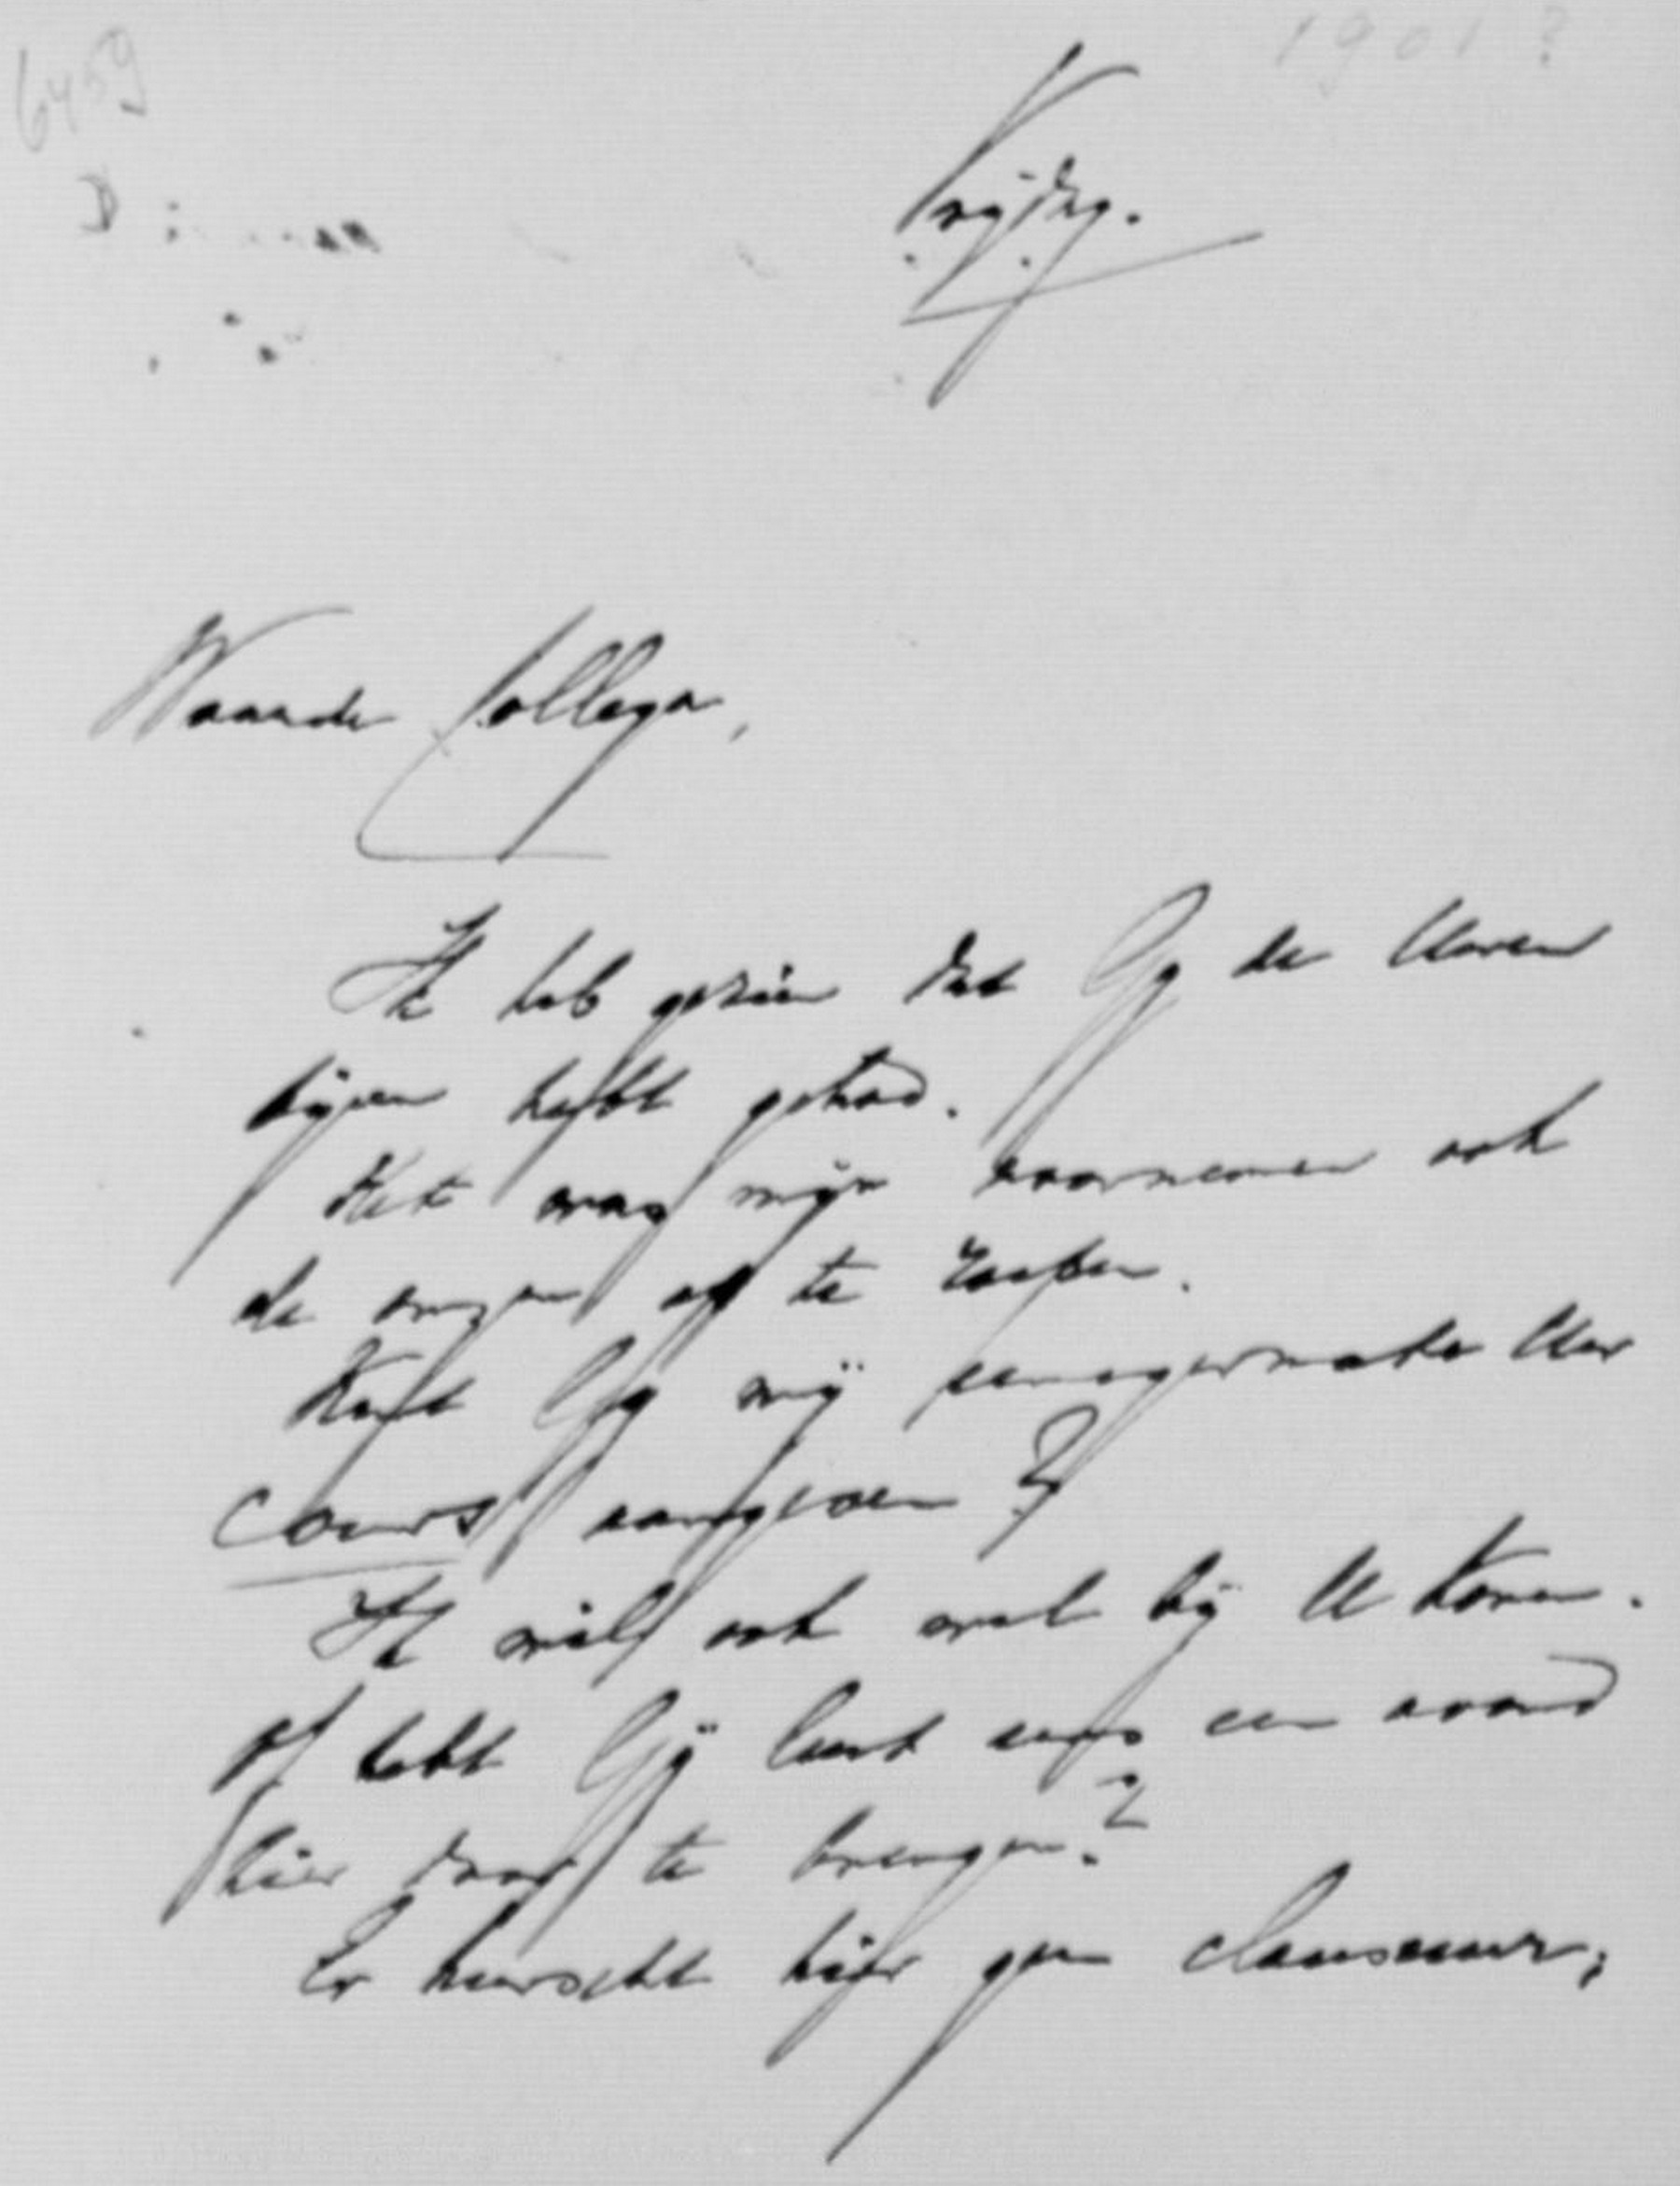 6459
1901?
Vrijdag.
Waarde Collega,
Ik heb gezien dat Gy de Uwen
bijeen hebt gehad.
Het was mijn voornemen ook
de mijnen op te roepen.
Kunt Gy mij eenigermate Uw
cours aangeven?
Ik wil ook wel bij U komen.
Of hebt Gij lust eens een avond
hier door te brengen?
Er heerscht hier geen clausuur;